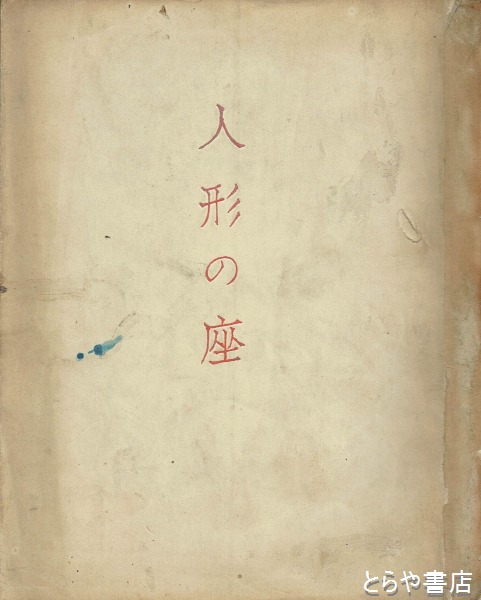 人形の座
とらや書店